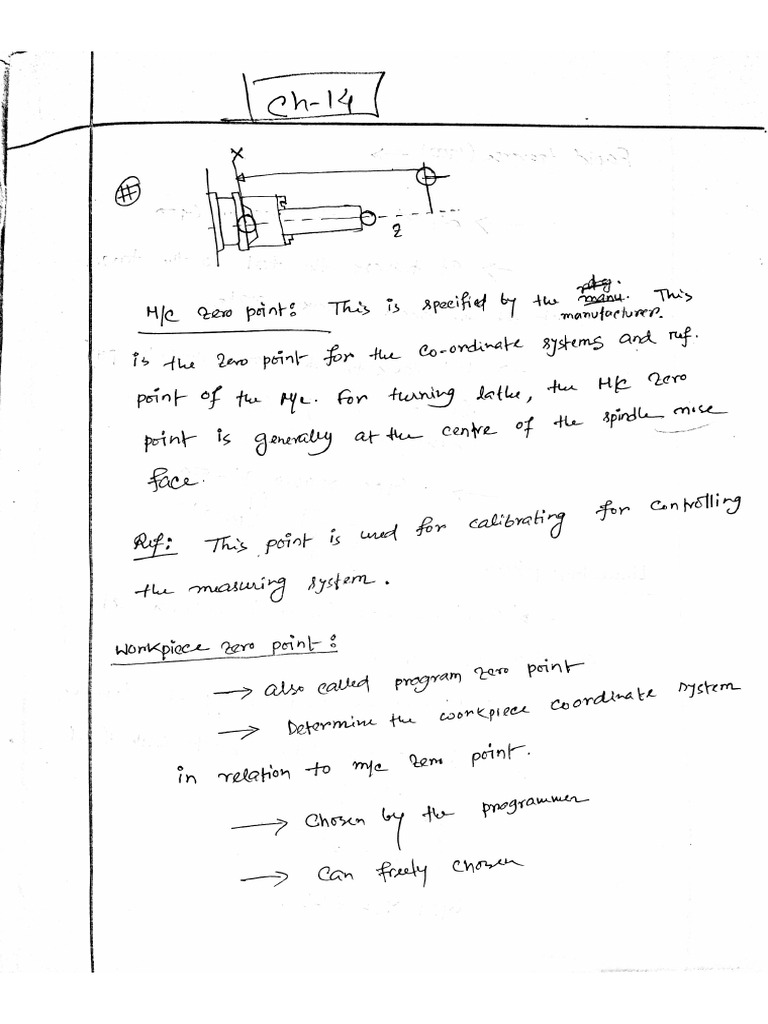 Ch-14
#
X
Z
M/C zero point: This is specified by the manu. This
manufacturer.
is the zero point for the co-ordinate systems and ref.
point of the M/c. For turning lathe, the M/C zero
point is generally at the centre of the spindle nose
face.
Ref: This point is used for calibrating for controlling
the measuring system.
Workpiece zero point:
→ also called program zero point
→ Determine the workpiece coordinate system
in relation to m/c zero point.
→ Chosen by the programmer
→ Can freely chosen